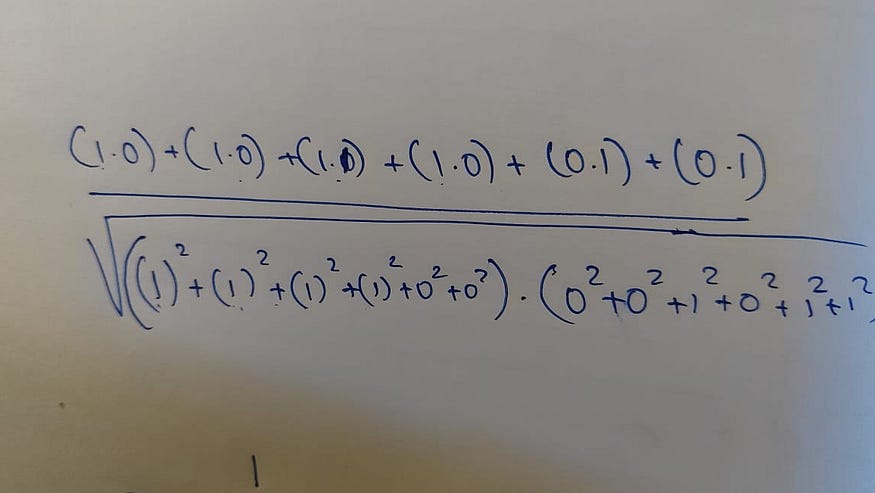 (1.0)+(1.0)+(1.0)+(1.0)+(0.1)+(0.1)
√((1)²+(1)²+(1)²+(1)²+0²+0²).(0²+0²+1²+0²+1²+1²